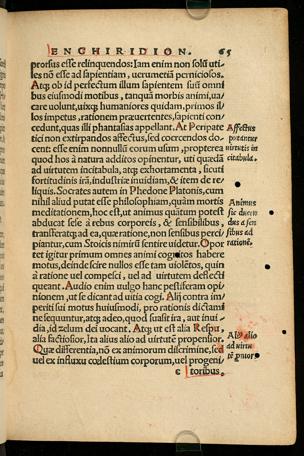 ENCHIRIDION. 65
prorsus esse relinquendos: Iam enim non solū uti-
les nō esse ad sapientiam, uerumetiā perniciosos.
Atq; ob id perfectum illum sapientem suū omni
bus eiusmodi motibus, tanquā morbis animi, ua-
care uolunt, uixq; humaniores quidam, primos il
los impetus, rationem præuertentes, sapienti con-
cedunt, quas illi phantasias appellant. At Peripate
tici non extirpandos affectus, sed coercendos do-
cent: esse enim nonnullū eorum usum, propterea
quod hos à natura additos opinentur, uti quædā
ad uirtutem incitabula, atq; exhortamenta, sicuti
fortitudinis irā, industriæ inuidiam, & item de re-
liquis. Socrates autem in Phedone Platonis, cum
nihil aliud putat esse philosophiam, quàm mortis
meditationem, hoc est, ut animus quātum potest
abducat sese à rebus corporeis, & sensibilibus,
transferatq; ad ea, quæ ratione, non sensibus perci-
piantur, cum Stoicis nimirū sentire uidetur. Opor
tet igitur primum omnes animi cognitos habere
motus, deinde scire nullos esse tam uiolētos, quin
à ratione uel compesci, uel ad uirtutem deflecti
queant. Audio enim uulgo hanc pestiferam opi-
nionem, ut se dicant ad uitia cogi. Alij contra im-
periti sui motus huiusmodi, pro rationis dictami
ne sequuntur, atq; adeo, quod suasit ira, aut inui-
dia, id zelum dei uocant. Atq; ut est alia Respu,
alia factiosior, Ita alius alio ad uirtutem propensior.
Quæ differentia, nō ex animorum discrimine, sed
uel ex influxu cœlestium corporum, uel progeni
e toribus,
Affectus
putantur
uirtutis in
citabula.
Animus
sic ducen
dus a sen
sibus ad
rationē.
Alius alio
ad uirtu
tē